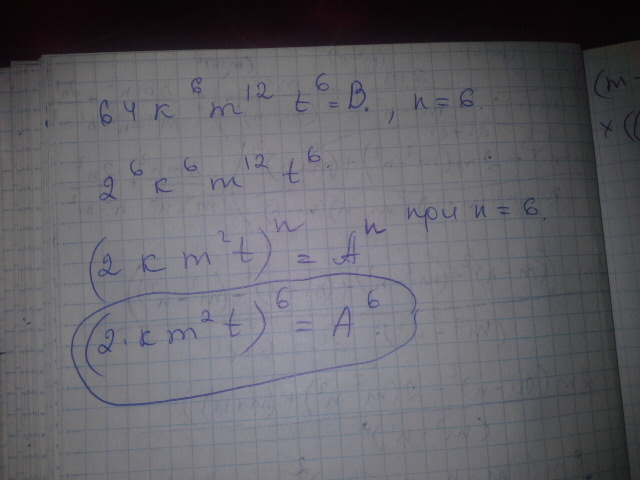 64 к⁶ m¹² t⁶ = B. , n = 6.
2⁶ к⁶ m¹² t⁶.
(2 к m² t)ⁿ = Aⁿ при n = 6.
(2 · к m² t)⁶ = A⁶
(m -
× ((